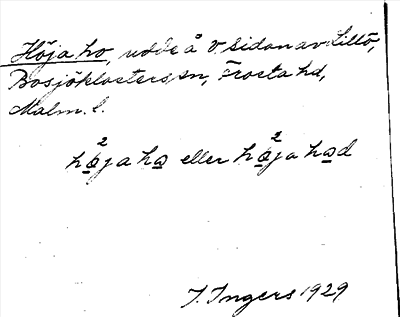 Höja ho, udde å v. sidan av Lillö,
Bosjöklosters sn, Frosta hd,
Malm. l.
2 2
höja ho eller höja hod
I. Ingers 1929